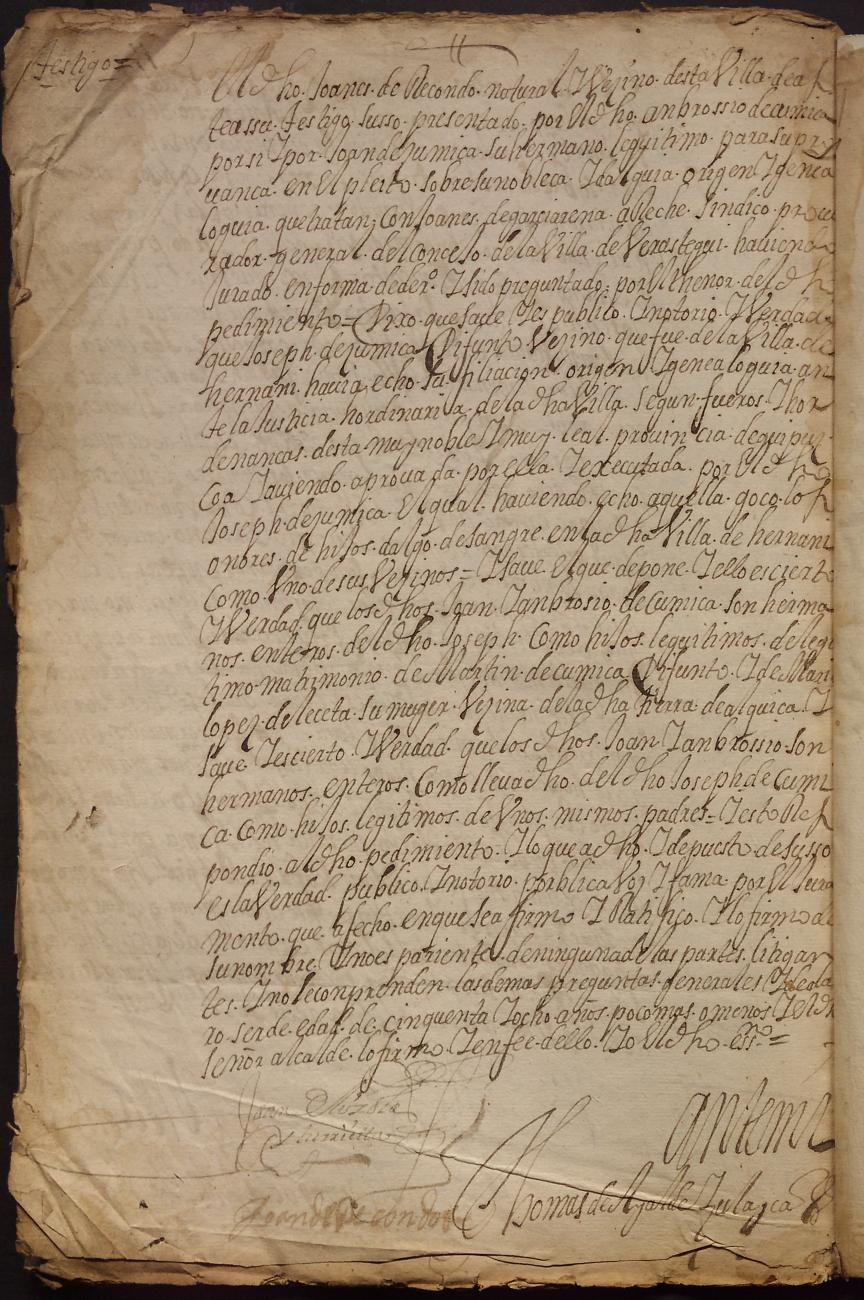 Testigo =
El dho. Joanes. de Recondo. natural. I Vezino. desta Villa. de as
teassu. testigo. susso. presentado. por El dho. anbrossio de cumica
por si I por. Joan de Jumica. Su hermano. leguitimo. para su pro
uanca. en El pleito. sobre su nobleca. Idalguia. origen I genea
loguia. que tratan; Con Joanes. de garciarena. aleche. Sindico. procu
rador. general. del Concejo. de la Villa. de Verastegui. hauiendo
Jurado. en forma. de der.º I sido preguntado; por El thenor. del dho
pedimiento = Dixo. que saue I es publico. I notorio. I Verdad.
que Joseph. de Jumica. Difunto. Vezino. que fue. de la Villa. de
hernani. hauia, echo. su filiacion. origen. I genealoguia. an
te la Justicia. hordinaria. de la dha Villa. segun. fueros. I hor
denancas. desta. muy noble I muy. leal. prouincia. de guipuz
coa I auiendo. aprouada. por ella. I executada. por El dho
Joseph. de Jumica. El qual. hauiendo. echo. aquella. goco. los
onores. de hijos. dalgo. de sangre. en la dha Villa. de hernani
Como. Vno. de sus Vezinos = I saue El que. depone. I ello es cierto
I Verdad. que los dhos. Joan. I anbrosio. de cumica. son herma
nos. enteros. del dho. Joseph. Como hijos. leguitimos. de legi
timo. matrimonio. de Martin. de cumica. Difunto. I de Mari
lopez. de leceta. su muger. Vezina. de la dha tierra. de alquica. I
saue I es cierto. I Verdad. que los dhos. Joan I anbrossio. son
hermanos. enteros. Como lleua dho. del dho Joseph. de Cumi
ca. Como. hijos. legitimos. de Vnos. mismos. padres = I esto Res
pondio. al dho. pedimiento. I lo que a dho. I depuesto. de susso
es la Verdad. publico. I notorio. publica Voz I fama. por El Jura
mento. que. a fecho. en que se a firmo I Ratifico. I lo firmo de
su nombre. I no es pariente. de ninguna de las partes. litigan
tes. I no le conprenden. las demas preguntas. generales I decla
ro. ser de. edad. de. cinquenta I ocho años. poco mas. o menos I El dho
señor alcalde. lo firmo. I en fee. dello. Io El dho. essno =
ante mi
Joan de Recondo
Thomas de Ayalde Zulayca